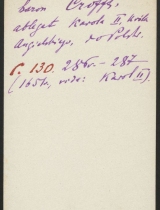 baron Croffts,
ablegat Karola II. Króla
Angielskiego, do Polski.
C. 130. 286v. – 287
(165 r, Karol II)